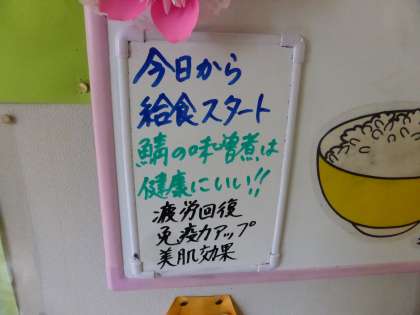 今日から
給食スタート
鯖の味噌煮は
健康にいい!!
疲労回復
免疫力アップ
美肌効果